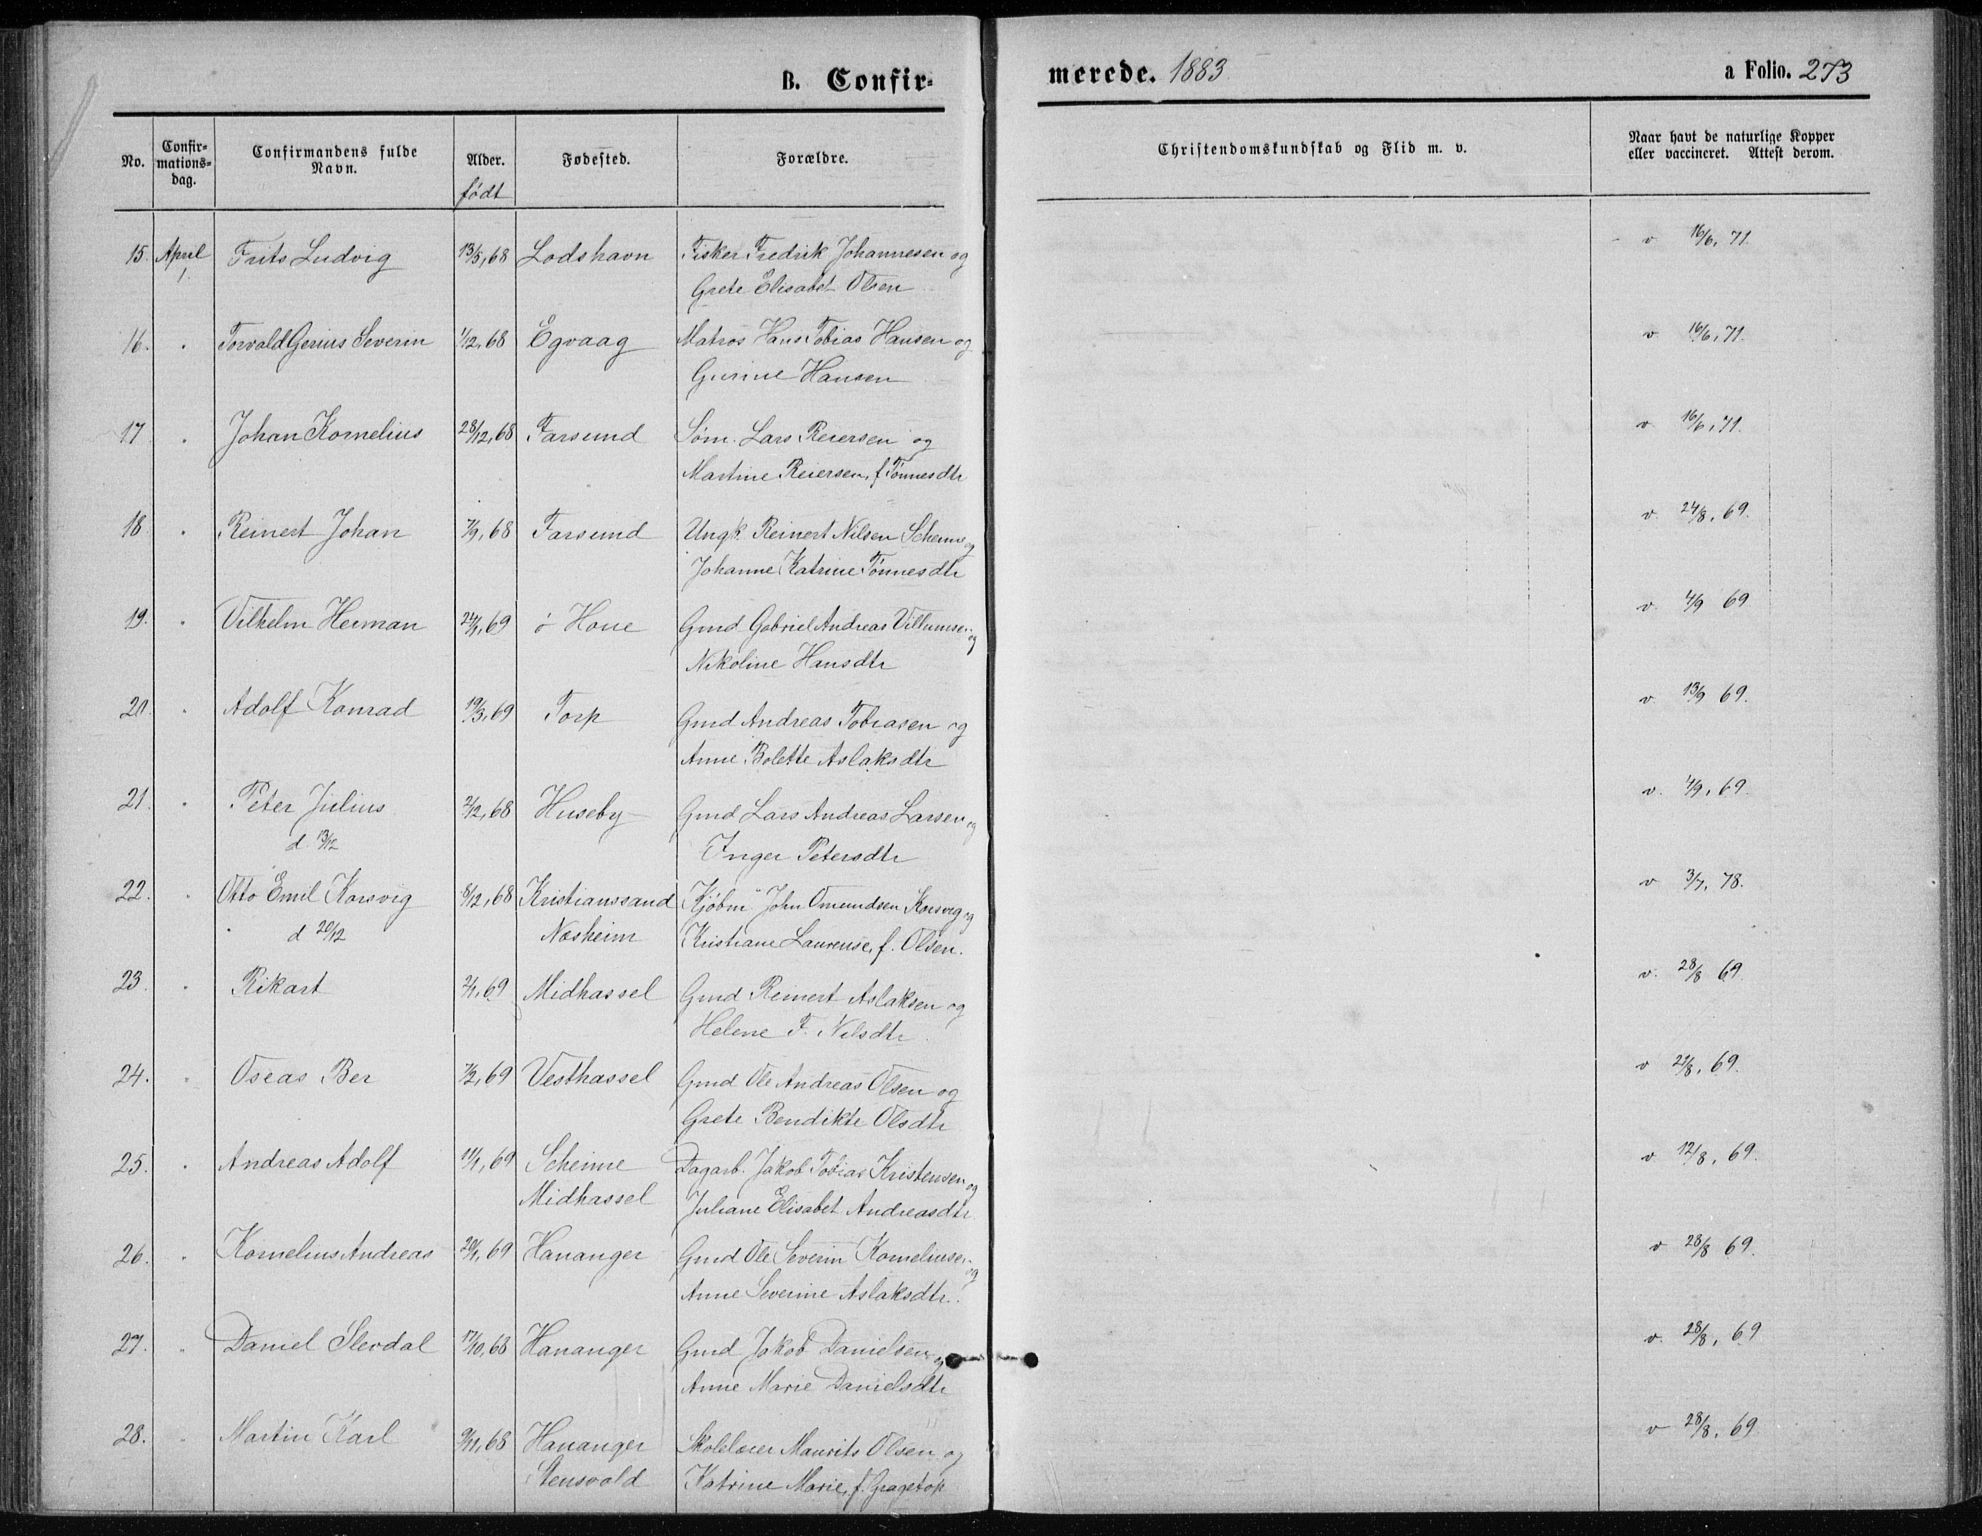 B. Confir-
merede. 1883
a Folio. 273
No.
Confir-
mations-
dag.
Confirmandens fulde
Navn.
Alder.
født
Fødested.
Forældre.
Christendomskundskab og Flid m. v.
Naar havt de naturlige Kopper
eller vaccineret. Attest derom.
15. April 1. Frits Ludvig 13/5, 68 Lodshavn Fisker Fredrik Johannesen og v 16/6, 71.
Grete Elisabet Olsen
16. " Torvald Gerius Severin 1/2, 68 Egvaag Matros Hans Tobias Hansen og v 16/6, 71.
Gurine Hansen
17 " Johan Kornelius 28/12, 68 Farsund Søm. Lars Reiersen og v 16/6, 71.
Martine Reiersen, f. Tønnesdtr
18. " Reinert Johan 7/9, 68 Farsund Ungk. Reinert Nilsen Scheime og v. 24/8, 69.
Johanne Katrine Tønnesdtr
19. " Vilhelm Herman 24/1, 69 ø Houe Gmd Gabriel Andreas Villumsen og v. 4/9 69
Nikoline Hansdtr
20 " Adolf Konrad 19/3, 69 Torp Gmd Andreas Tobiasen og v. 13/9 69.
Anne Bolette Aslaksdtr
21. " Peter Julius 2/12, 68 Huseby Gmd Lars Andreas Larsen og v. 4/9, 69.
d. 13/12 Inger Petersdtr
22. " Otto Emil Korsvig 8/12, 68 Kristianssand Kjøbm John Omundsen Korsvig og v 3/7, 78.
d 20/12 Næsheim Kristiane Laurense, f. Olsen.
23. " Rikart 2/1, 69 Midhassel Gmd Reinert Aslaksen og v. 28/8 69.
Helene F. Nilsdtr.
24. " Oseas Ber 7/2, 69 Vesthassel Gmd Ole Andreas Olsen og v 21/8, 69.
Grete Bendikte Olsdtr
25. " Andreas Adolf 11/1, 69 Scheime Dagarb. Jakob Tobias Kristensen og v 12/8, 69.
Midhassel Juliane Elisabet Andreasdtr.
26. " Kornelius Andreas 20/1, 69 Hananger Gmd Ole Severin Korneliusen og v 28/8 69.
Anne Severine Aslaksdtr.
27. " Daniel Slevdal 17/10, 68 Hananger Gmd Jakob Danielsen og v. 28/8, 69
Anne Marie Danielsdtr
28. " Martin Karl 9/11, 68 Hananger Skolelærer Maurits Olsen og v 28/8, 69.
Stensvold Katrine Marie, f. Gragetop